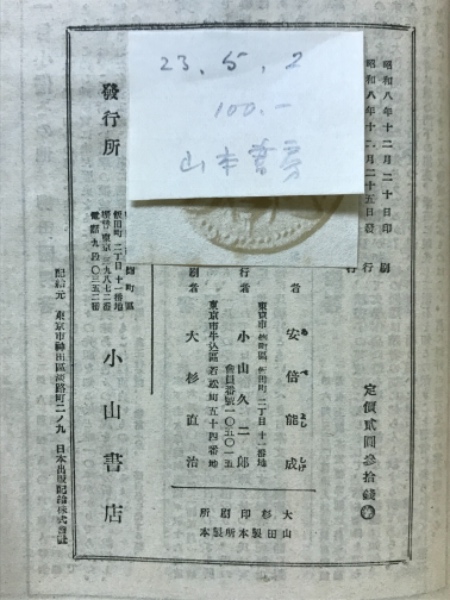 23.5.2
100.-
山本書房
昭和八年十二月二十日印刷
昭和八年十二月二十五日發行
定價貳圓參拾錢
者 安倍能成
あ べ よし しげ
東京市麴町區飯田町二丁目十一番地
行者 小山久二郎
會員番號一〇五〇一五
東京市牛込區若松町五十四番地
刷者 大杉直治
大杉印刷所
山田製本所製本
發行所
麴町區
飯田町二丁目十一番地
振替東京三九八七二番
電話九段〇三五二番
小山書店
配給元 東京市神田區淡路町二ノ九 日本出版配給株式會社